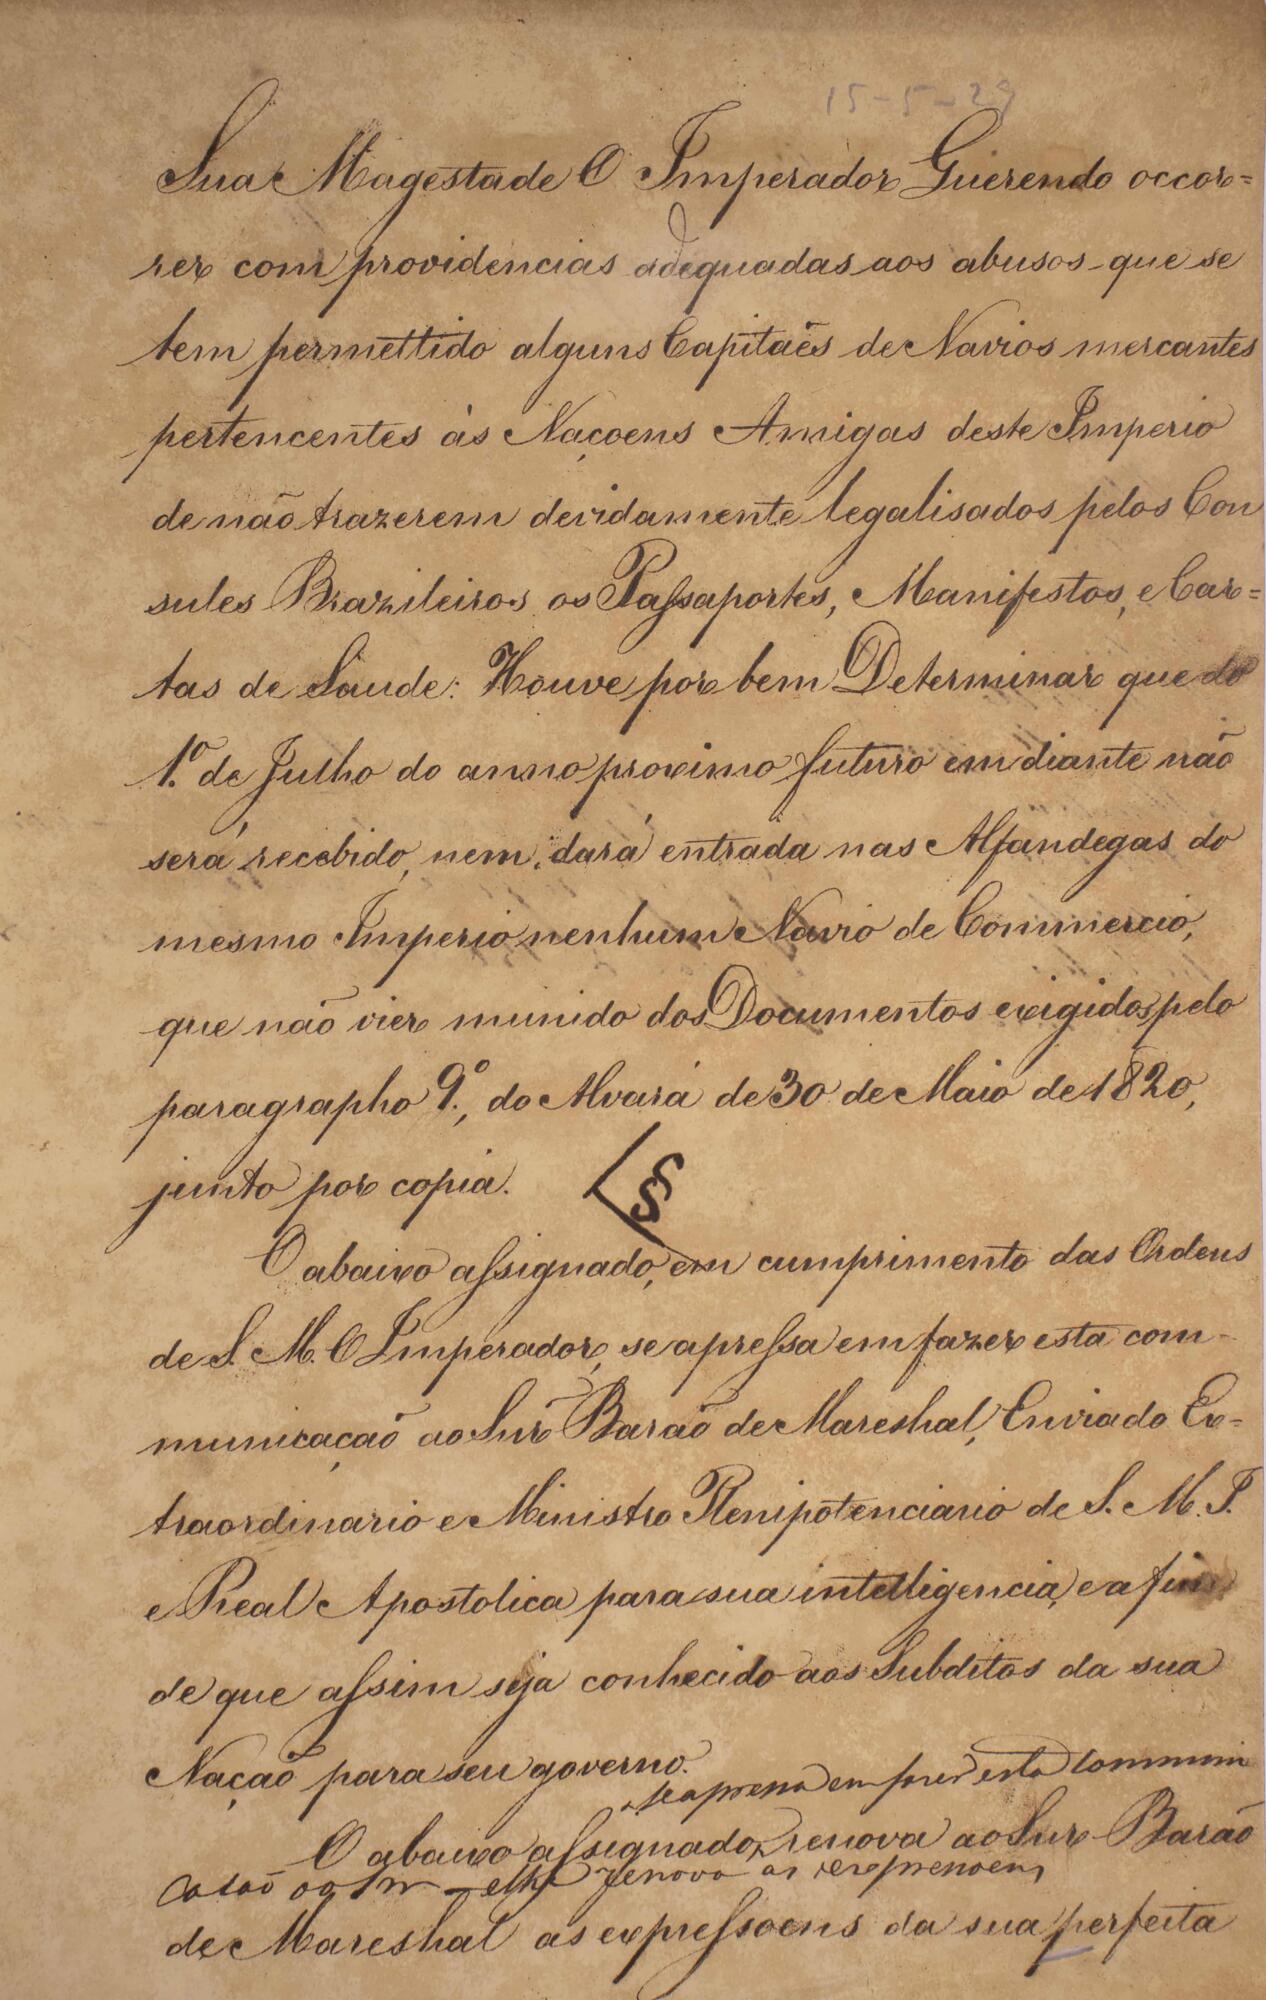 15-5-29
Sua Magestade O Imperador Querendo occor=
rer com providencias adequadas aos abusos que se
tem permettido alguns Capitaẽs de Navios mercantes
pertencentes ás Naçoens Amigas deste Imperio
de não trazerem devidamente legalisados pelos Con
sules Brazileiros os Passaportes, Manifestos, e Car=
tas de Saude: Houve por bem Determinar que do
1.º de Julho do anno proximo futuro em diante não
será recebido, nem dará entrada nas Alfandegas do
mesmo Imperio nenhum Navio de Commercio,
que não vier munido dos Documentos exigidos pelo
paragrapho 9.º, do Alvará de 30 de Maio de 1820,
junto por copia.
§
O abaixo assignado, em cumprimento das Ordens
de S. M. O Imperador, se apressa em fazer esta com-
municação ao Snr Barão de Mareshal, Enviado Ex=
traordinario e Ministro Plenipotenciario de S. M. I.
e Real Apostolica para sua intelligencia, e a fim
de que assim seja conhecido aos Subditos da sua
Nação para seu governo.
se apressa em fazer esta Communi
O abaixo assignado, renova ao Snr Barão
cação ao Snr renova as expressoens
de Mareshal as expressoens da sua perfeita